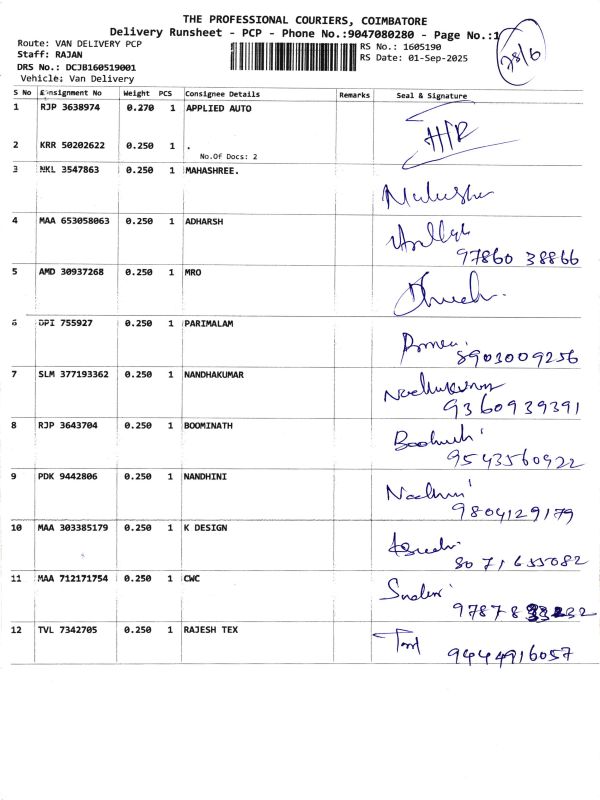 THE PROFESSIONAL COURIERS, COIMBATORE
Delivery Runsheet - PCP - Phone No.:9047080280 - Page No.:1
78/6
Route: VAN DELIVERY PCP
RS No.: 1605190
Staff: RAJAN
RS Date: 01-Sep-2025
DRS No.: DCJB160519001
Vehicle: Van Delivery
S No Consignment No Weight PCS Consignee Details Remarks Seal & Signature
1 RJP 3638974 0.270 1 APPLIED AUTO
2 KRR 50202622 0.250 1 .
No.Of Docs: 2
3 NKL 3547863 0.250 1 MAHASHREE.
4 MAA 653058063 0.250 1 ADHARSH
97860 38866
5 AMD 30937268 0.250 1 MRO
6 DPI 755927 0.250 1 PARIMALAM
8903009256
7 SLM 377193362 0.250 1 NANDHAKUMAR
9360939391
8 RJP 3643704 0.250 1 BOOMINATH
9543560922
9 PDK 9442806 0.250 1 NANDHINI
9804129179
10 MAA 303385179 0.250 1 K DESIGN
8071655082
11 MAA 712171754 0.250 1 CWC
12 TVL 7342705 0.250 1 RAJESH TEX
9444916057